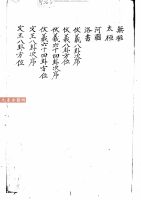 無極
太極
河圖
洛書
伏羲八卦次序
伏羲八卦方位
伏羲六十四卦次序
伏羲六十四卦方位
文王八卦次序
文王八卦方位